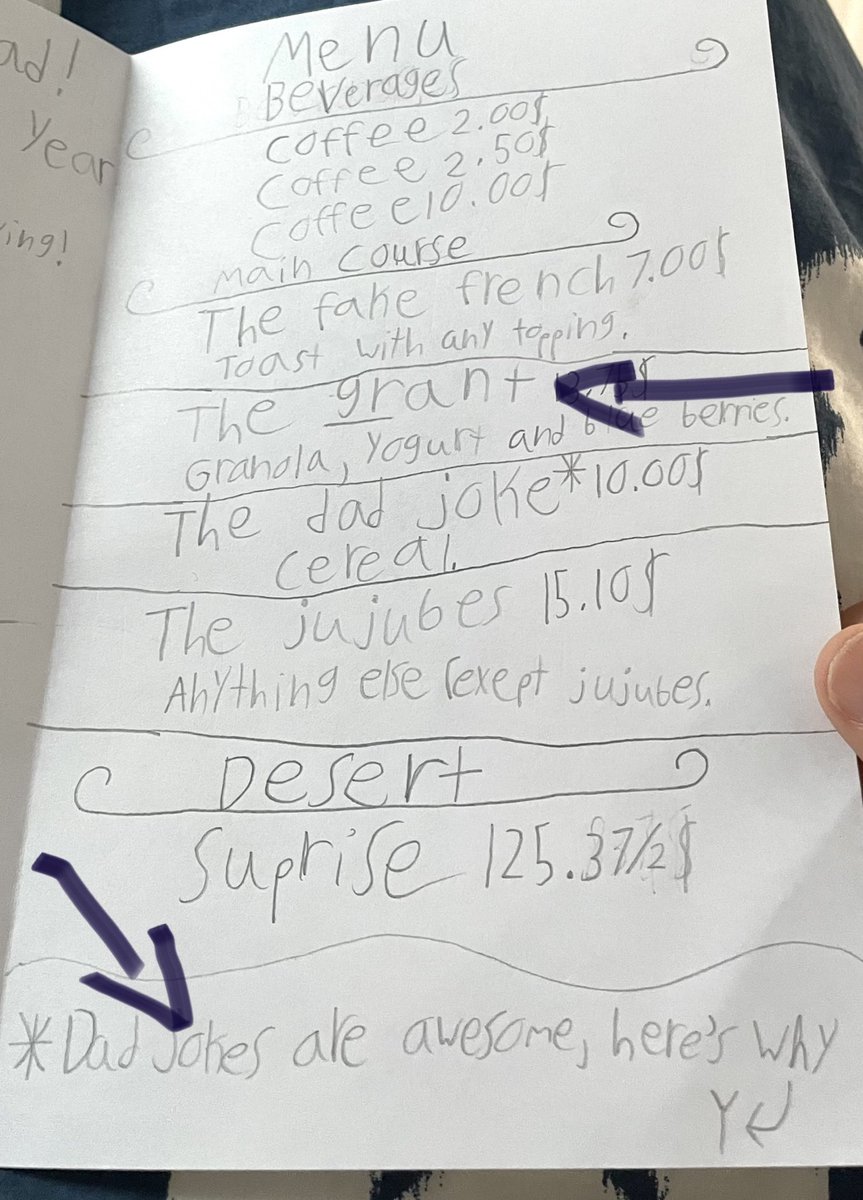 ad!
Year
ing!
Menu
Beverages
Coffee 2.00$
Coffee 2.50$
Coffee 10.00$
Main Course
The fake french 7.00$
Toast with any topping.
The grant
Granola, Yogurt and blue berries.
The dad joke* 10.00$
cereal.
The jujubes 15.10$
Anything else (exept jujubes.
Desert
Suprise 125.37/2$
*Dad Jokes are awesome, here's why
Y